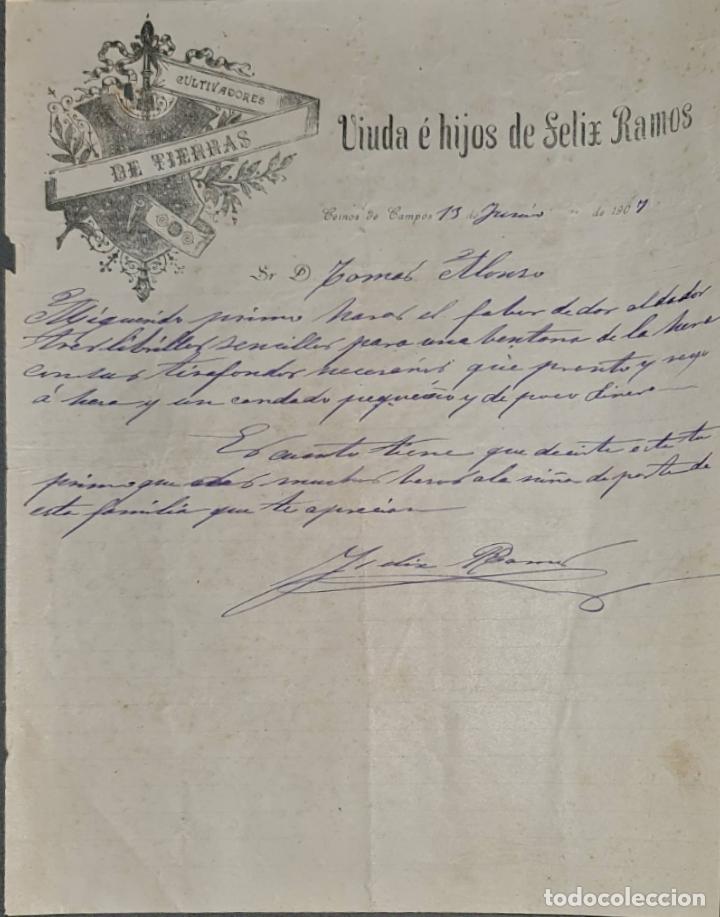 CULTIVADORES
DE TIERRAS
Viuda é hijos de Felix Ramos
Ceinos de Campos 13 de Junio de 1907
Sr D. Tomas Alonso
Mi querido primo haras el fabor de dar al dador
tres librillos sencillos para una bentana de la hera
con sus tirafondos necesarios que pronto y
á hera y un candado pequeño y de poco dinero
Es cuanto tiene que decirte este tu
primo que das muchos besos a la niña de parte de
esta familia que te aprecian
Felix Ramos
todocoleccion